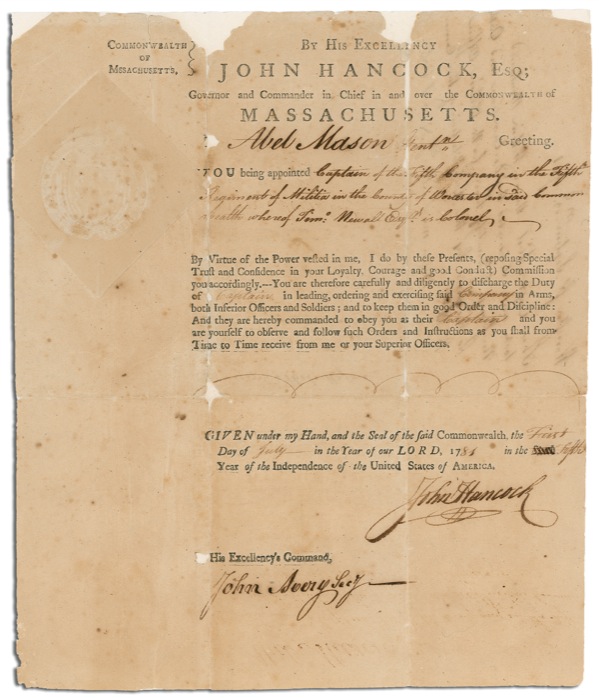 COMMONWEALTH
OF
MASSACHUSETTS,
BY HIS EXCELLENCY
JOHN HANCOCK, Esq;
Governor and Commander in Chief in and over the COMMONWEALTH of
MASSACHUSETTS.
Abel Mason Gentn Greeting.
YOU being appointed Captain of the Fifth Company in the Fifth
Regiment of Militia in the County of Worcester in said Common
wealth whereof Timo: Newall Esqr. is Colonel,
By Virtue of the Power vested in me, I do by these Presents, (reposing Special
Trust and Confidence in your Loyalty, Courage and good Conduct) Commission
you accordingly.---You are therefore carefully and diligently to discharge the Duty
of Captain in leading, ordering and exercising said Company in Arms,
both Inferior Officers and Soldiers; and to keep them in good Order and Discipline:
And they are hereby commanded to obey you as their Captain and you
are yourself to observe and follow such Orders and Instructions as you shall from
Time to Time receive from me or your Superior Officers.
GIVEN under my Hand, and the Seal of the said Commonwealth, the First
Day of July in the Year of our LORD, 1781 in the Fifth
Year of the Independence of the United States of AMERICA.
John Hancock
His Excellency's Command,
John Avery Secy